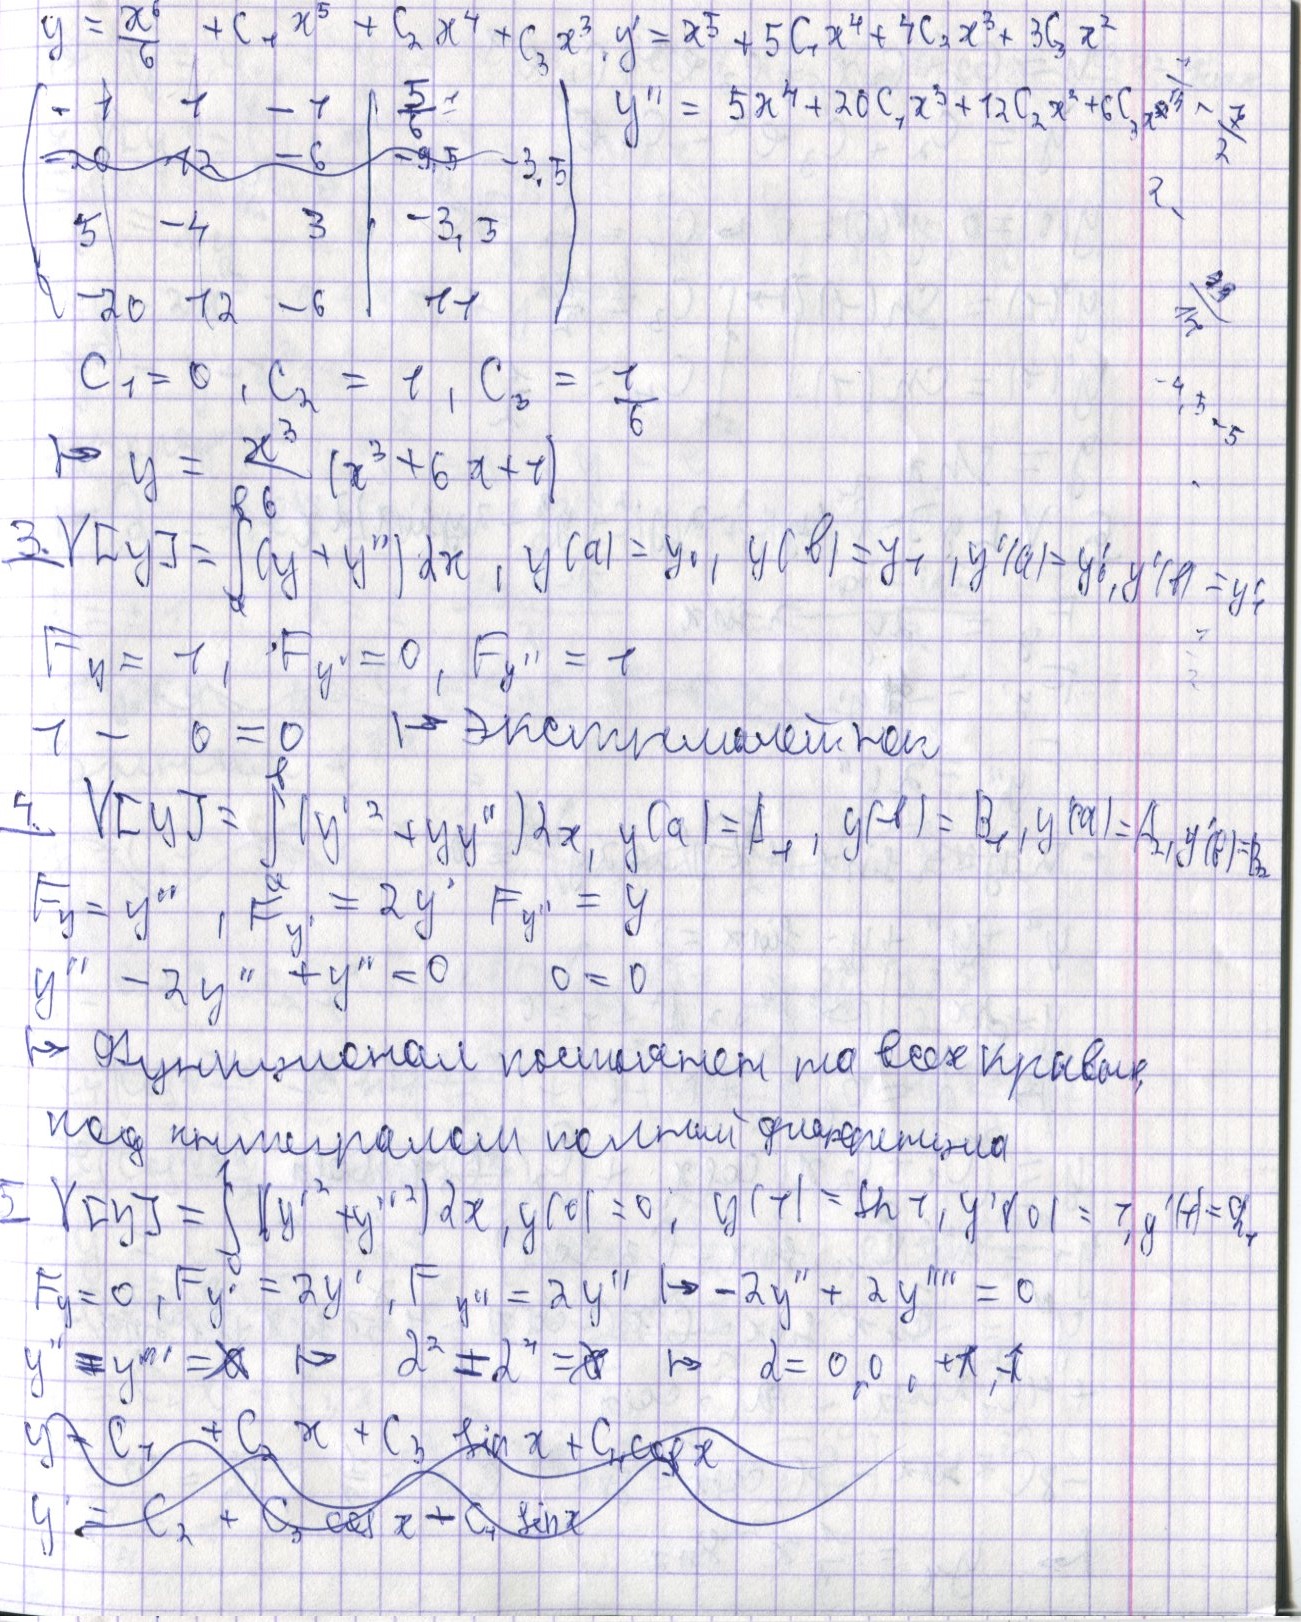 y = x⁶/6 + C₁x⁵ + C₂x⁴ + C₃x³, y' = x⁵ + 5C₁x⁴ + 4C₂x³ + 3C₃x²
-1 1 -1 | 5/6 y'' = 5x⁴ + 20C₁x³ + 12C₂x² + 6C₃x
-20 12 -6 | -9,5 -3,5
5 -4 3 | -3,5
-20 12 -6 | 11
C₁ = 0, C₂ = 1, C₃ = 1/6
↦ y = x³/6 (x³ + 6x + 1)
3. V[y] = ∫ₐᵇ (y + y'') dx, y(a) = y₀, y(b) = y₁, y'(a) = y'₀, y'(b) = y'₁
F_y = 1, F_y' = 0, F_y'' = 1
1 - 0 = 0 ↦ Экстремалей нет
4. V[y] = ∫ₐᵇ (y'² + yy'') dx, y(a) = A₁, y(b) = B₁, y'(a) = A₂, y'(b) = B₂
F_y = y'', F_y' = 2y' F_y'' = y
y'' - 2y'' + y'' = 0 0 = 0
↦ Функционал постоянен на всех кривых,
под интегралом полный
5 V[y] = ∫₀¹ (y'² + y''²) dx, y(0) = 0; y(1) = sh 1, y'(0) = 1, y'(1) = ch 1
F_y = 0, F_y' = 2y', F_y'' = 2y'' ↦ -2y'' + 2y'''' = 0
y'' = y'''' ↦ λ² = λ⁴ ↦ λ = 0, 0, +1, -1
y = C₁ + C₂ x + C₃ sin x + C₄ cos x
y' = C₂ + C₃ cos x - C₄ sin x